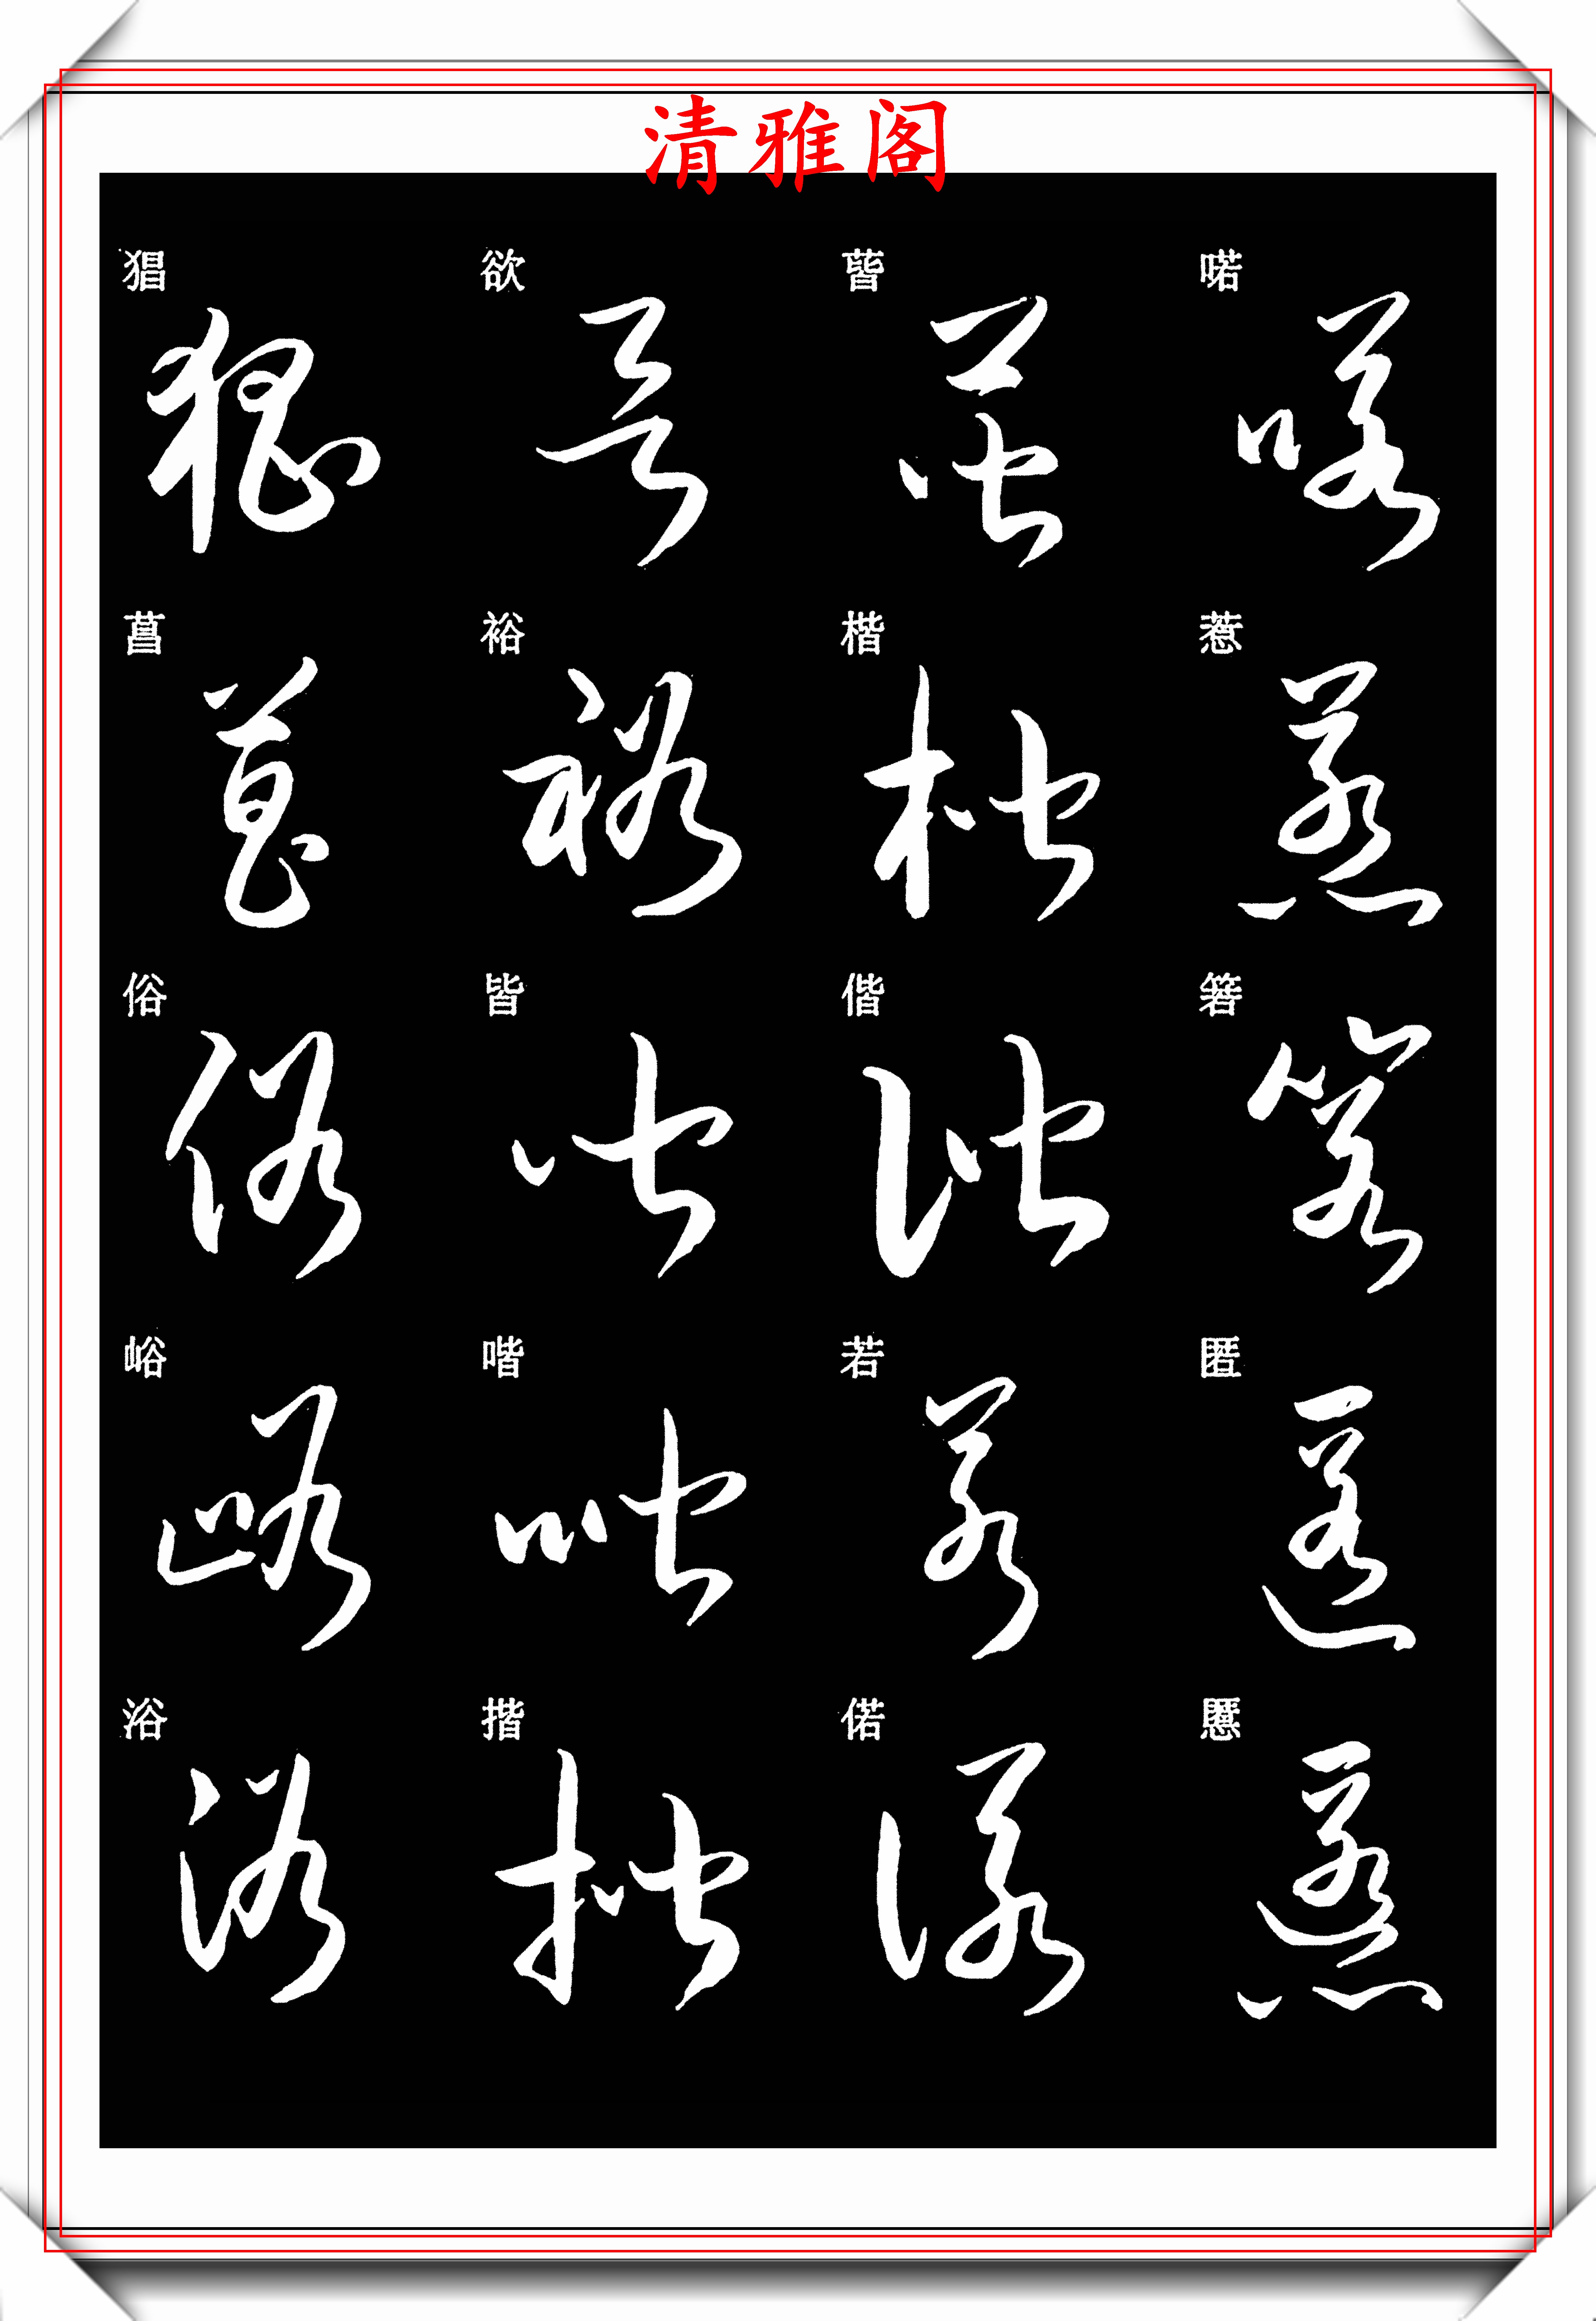 清雅阁
猖 欲 蒈 喏
菖 裕 楷 惹
俗 皆 偕 箬
峪 喈 若 匿
浴 揩 偌 慝